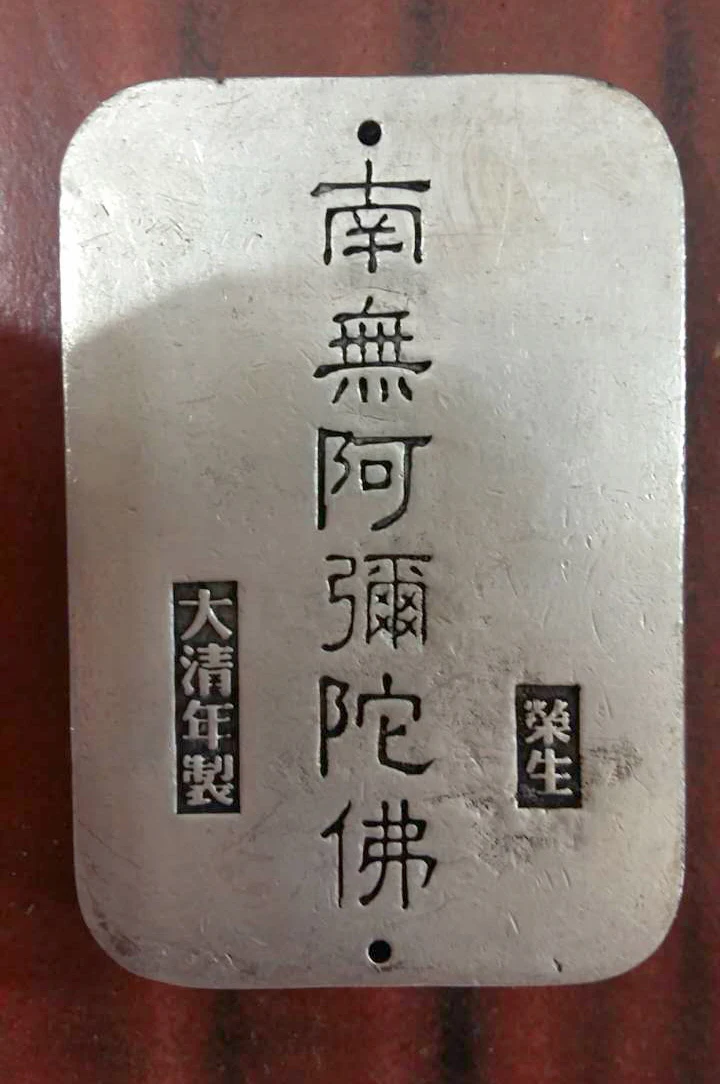 榮生
南無阿彌陀佛
大清年製